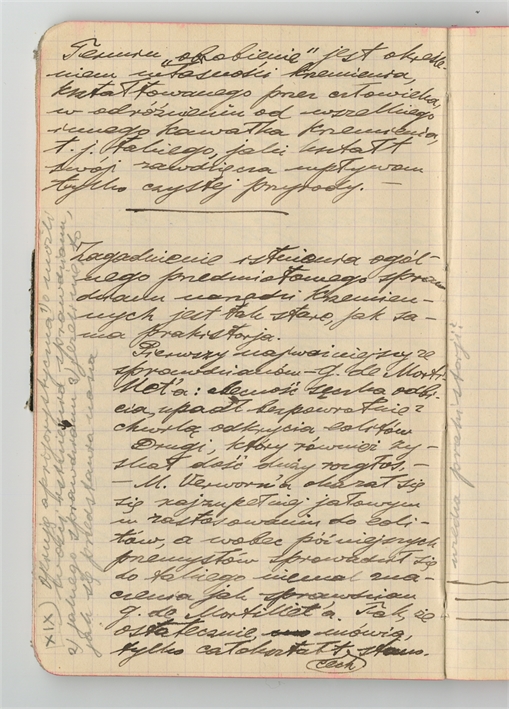 Termin „obrobienie" jest określe-
niem własności krzemienia,
kształtowanego przez człowieka,
w odróżnieniu od wszelkiego
innego kawałka krzemienia,
t. j. takiego, jaki kształt
swój zawdzięcza wpływom
tylko czystej przyrody. —
Zagadnienie istnienia ogól-
nego przedmiotowego spraw
dzianu narzędzi krzemien-
nych jest tak stare, jak sa-
ma prahistorja.
Pierwszy najważniejszy ze
sprawdzianów — G. de Morti
llet'a: obecność sęczka odbi
cia, upadł bezpowrotnie z
chwilą odkrycia eolitów
Drugi, który również zy-
skał dość duży rozgłos, —
— M. Verworn'a okazał się
się najzupełniej jałowym
w zastosowaniu do eoli-
tów, a wobec późniejszych
przemysłów sprowadził się
do takiego niemal zna-
czenia jak sprawdzian
G. de Mortillet'a. Tak, że
ostatecznie mówią,
tylko całokształt
cech
XIX)
wiedza prahistorji?